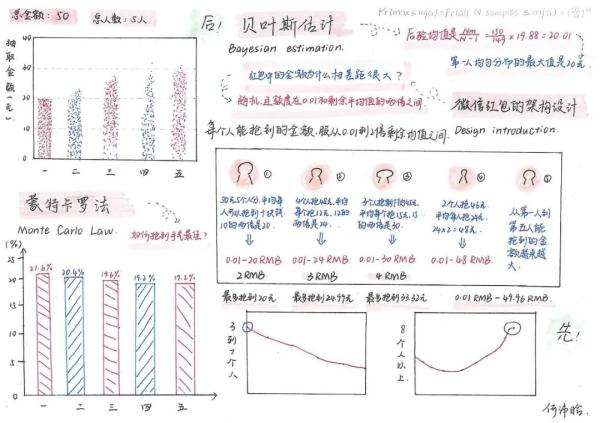 总金额: 50
总人数: 5人.
后!
贝叶斯估计
Bayesian estimation.
后验均值是 Nm/N-1 = 150/149 × 19.88 = 20.01
第一人均匀分布的最大值是20元.
抽取金额(元)
40
30
20
10
0
一 二 三 四 五
红包中的金额为什么相差能很大?
随机,且额度在0.01和剩余平均值的两倍之间.
微信红包的架构设计
Design introduction.
每个人能抢到的金额.服从0.01到2倍剩余均值之间.
① ② ③ ④ ⑤
50元5个人分.平均每人可以抢到十块钱 10的两倍是20.
4个人抢48元.平均每个抢12元.12的两倍是24.
3个人抢剩下的45元.平均每个抢15元.15的两倍是30.
2个人抢48元.平均每人抢24元. 24×2=48元.
从第一人到第五人能抢到的金额越来越大.
0.01-20 RMB
0.01-24 RMB
0.01-30 RMB
0.01-48 RMB.
2 RMB
3 RMB
4 RMB
最多抢到20元
最多抢到24.99元
最多抢到33.32元
0.01 RMB-49.96 RMB.
蒙特卡罗法
Monte Carlo Law.
如何抢到手气最佳?
(%)
25
20
15
10
5
0
21.6%
20.4%
19.6%
19.2%
19.2%
一 二 三 四 五
3到7个人
8个人以上.
先!